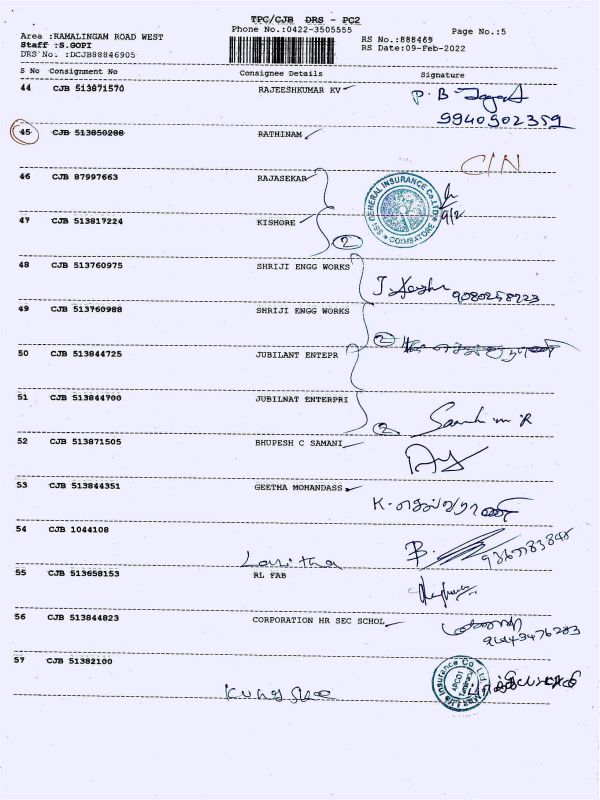 TPC/CJB DRS - PC2
Phone No.:0422-3505555
Page No.:5
Area :RAMALINGAM ROAD WEST
RS No.:888469
Staff :S.GOPI
RS Date:09-Feb-2022
DRS No. :DCJB88846905
S No Consignment No Consignee Details Signature
44 CJB 513871570 RAJEESHKUMAR KV
9940902359
45 CJB 513850288 RATHINAM
C/N
46 CJB 87997663 RAJASEKAR
SBI GENERAL INSURANCE Co. Ltd
COIMBATORE
9/2
47 CJB 513817224 KISHORE
2
48 CJB 513760975 SHRIJI ENGG WORKS
9080258223
49 CJB 513760988 SHRIJI ENGG WORKS
2
50 CJB 513844725 JUBILANT ENTEPR
51 CJB 513844700 JUBILNAT ENTERPRI
2
52 CJB 513871505 BHUPESH C SAMANI
53 CJB 513844351 GEETHA MOHANDASS
54 CJB 1044108
Lavitha
55 CJB 513658153 RL FAB
56 CJB 513844823 CORPORATION HR SEC SCHOL
57 CJB 51382100
Life Insurance Co Ltd